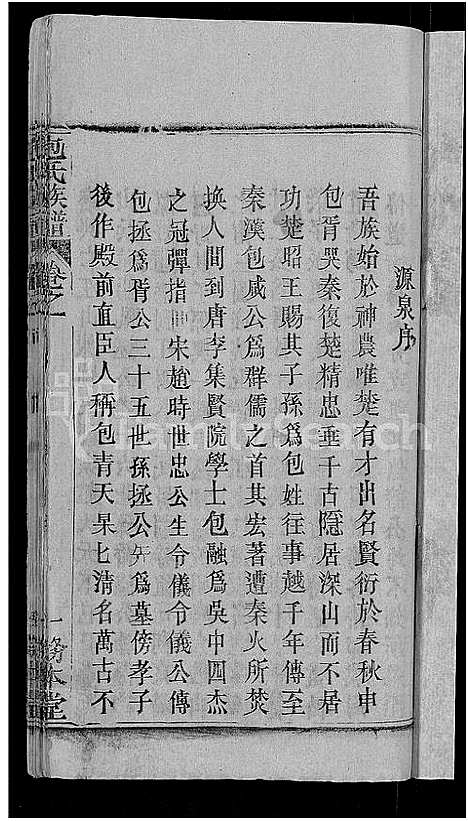 源泉序
吾族始於神農唯楚有才出名賢衍於春秋申
包胥哭秦復楚精忠垂千古隱居深山而不居
功楚昭王賜其子孫爲包姓往事越千年傳至
秦漢包咸公爲群儒之首其宏著遭秦火所焚
換人間到唐李集賢院學士包融爲吳中四杰
之冠彈指㆒宋趙時世忠公生令儀令儀公傳
包拯爲胥公三十五世孫拯公㱏爲墓傍孝子
後作殿前直臣人稱包青天杲匕清名萬古不
包氏族譜
卷之一
務本堂
FamilySearch